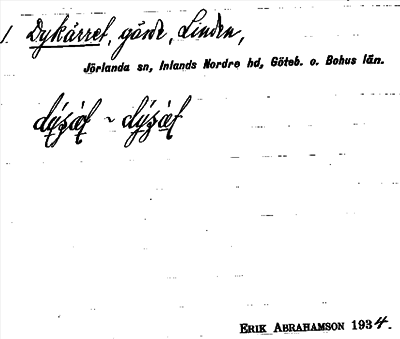 1. Dykärret, gärde, Linden,
Jörlanda sn, Inlands Nordre hd, Göteb. o. Bohus län.
~
ERIK ABRAHAMSON 1934.